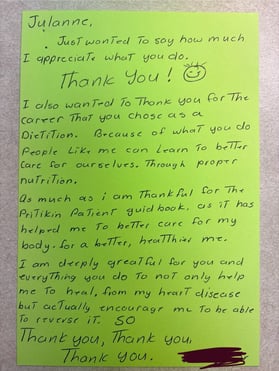 Julanne,
Just wanted to say how much
I appreciate what you do.
Thank You!
I also wanted to Thank you for The
career That you chose as a
Dietition. Because of what you do
People like me can Learn to better
Care for ourselves. Through proper
nutrition.
As much as i am Thankful for The
Pritikin Patient guidbook. as it has
helped me to better care for my
body. for a better, healthier me.
I am deeply greatful for you and
everything you do to not only help
me to heal, from my heart disease
but actually encourage me to be able
to reverse it. SO
Thank you, Thank you,
Thank you.